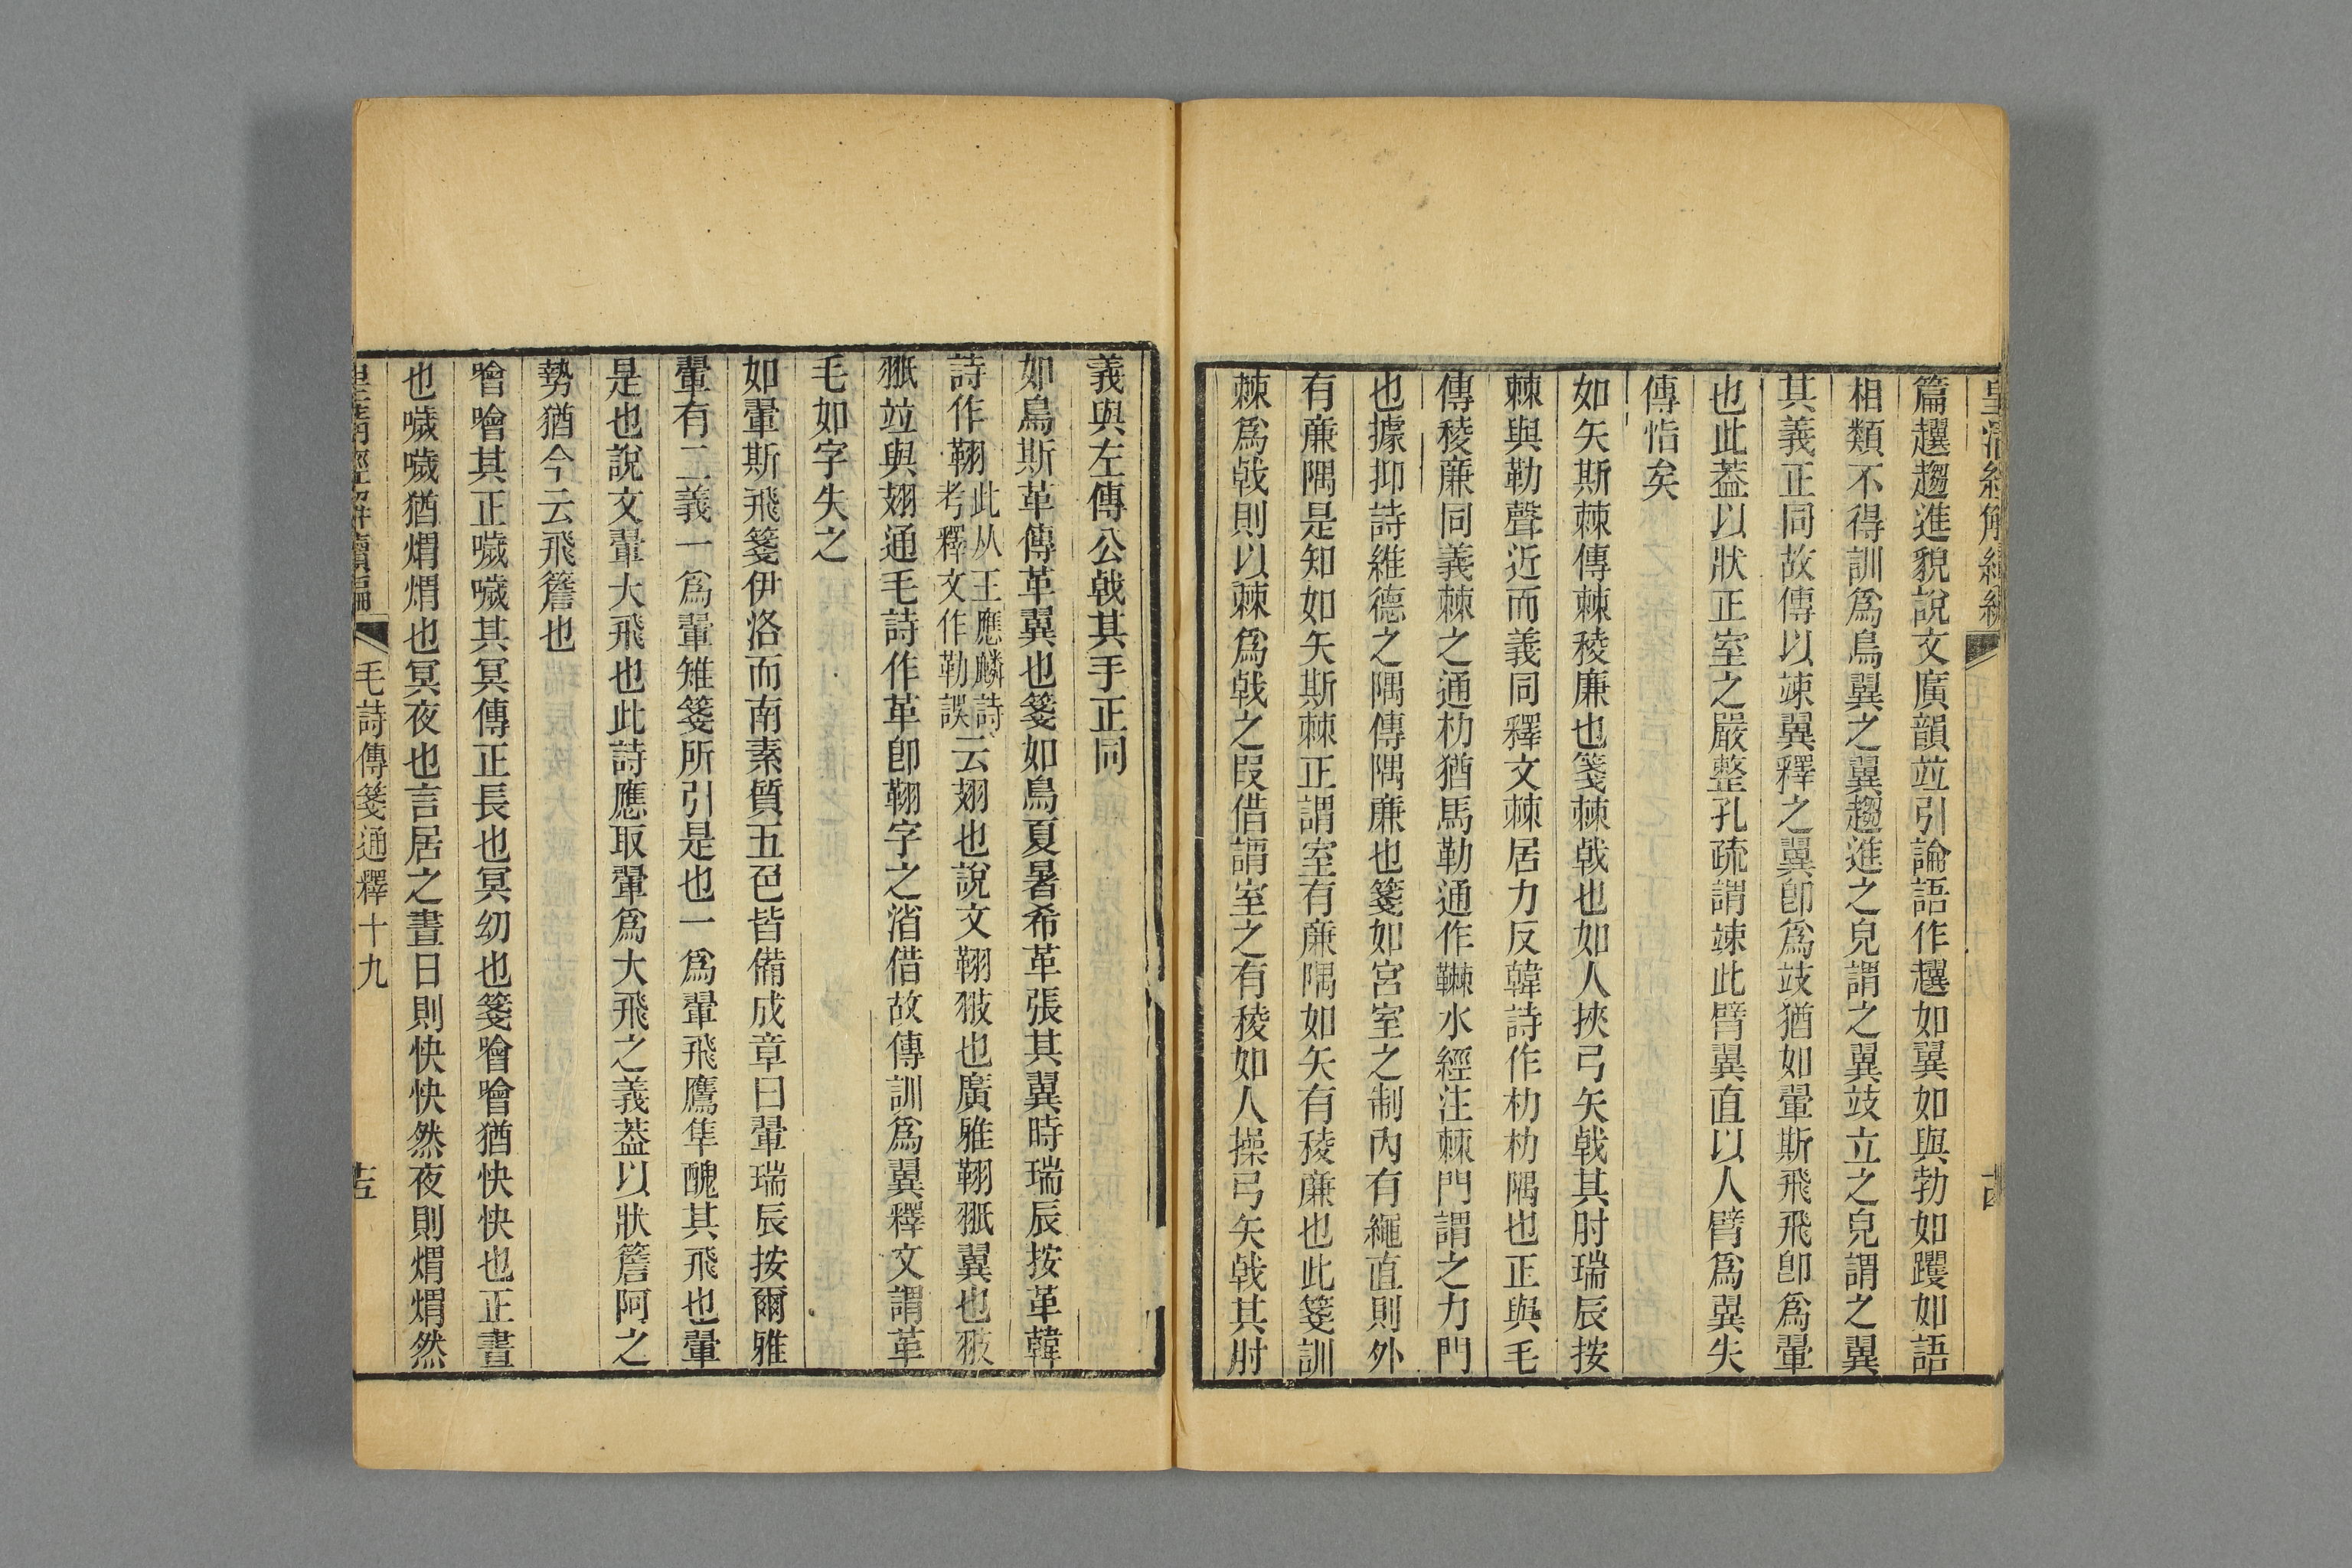 篇趯趨進貌說文廣韻竝引論語作趯如翼如與勃如躩如語
相類不得訓爲鳥翼之翼趨進之皃謂之翼竦立之皃謂之翼
其義正同故傳以竦翼釋之翼卽爲竦猶如翬斯飛飛卽爲翬
也此葢以狀正室之嚴整孔疏謂竦此臂翼直以人臂爲翼失
傳恉矣
如矢斯棘傳棘稜廉也箋棘戟也如人挾弓矢戟其肘瑞辰按
棘與勒聲近而義同釋文棘居力反韓詩作朸朸隅也正與毛
傳稜廉同義棘之通朸猶馬勒通作䩯水經注棘門謂之力門
也據抑詩維德之隅傳隅廉也箋如宮室之制內有繩直則外
有廉隅是知如矢斯棘正謂室有廉隅如矢有稜廉也此箋訓
棘爲戟則以棘爲戟之叚借謂室之有稜如人操弓矢戟其肘
義與左傳公戟其手正同
如鳥斯革傳革翼也箋如鳥夏暑希革張其翼時瑞辰按革韓
詩作䩹此从王應麟詩考釋文作勒誤云翅也說文䩹翄也廣雅䩹翨翼也翄
翨竝與翅通毛詩作革卽䩹字之渻借故傳訓爲翼釋文謂革
毛如字失之
如翬斯飛箋伊洛而南素質五色皆備成章曰翬瑞辰按爾雅
翬有二義一爲翬雉箋所引是也一爲翬飛鷹隼醜其飛也翬
是也說文翬大飛也此詩應取翬爲大飛之義葢以狀簷阿之
勢猶今云飛簷也
噲噲其正噦噦其冥傳正長也冥幼也箋噲噲猶快快也正晝
也噦噦猶煟煟也冥夜也言居之晝日則快快然夜則煟煟然
毛詩傳箋通釋十九